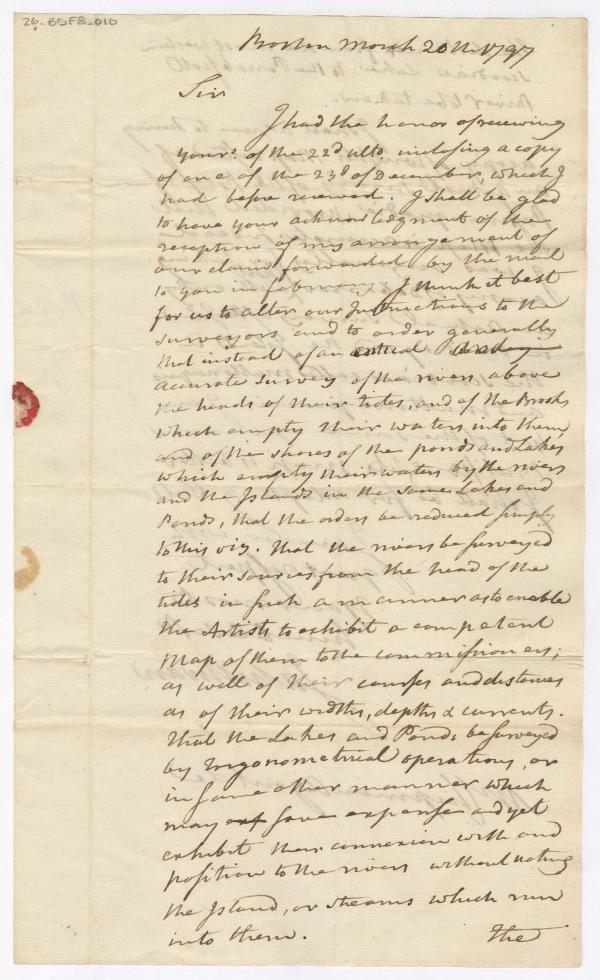 26-85F8-010
Boston March 20th 1797
Sir
I had the honor of receiving
yours. of the 22d ulto. inclosing a copy
of one of the 23d of December, which I
had before received. I shall be glad
to have your acknowledgment of the
reception of my arrangement of
our claim forwarded by the mail
to you in february. I think it best
for us to alter our Instructions to the
surveyors and to order generally
that instead of an actual and
accurate survey of the rivers above
the heads of their tides, and of the Brooks
which empty their waters into them,
and of the shores of the ponds and Lakes
which empty their waters by the rivers
and the Islands in the same Lakes and
Ponds, that the orders be reduced simply
to this viz. that the rivers be surveyed
to their sources from the head of the
tides in such a manner as to enable
the Artists to exhibit a competent
Map of them to the commissioners;
as well of their courses and distances
as of their widths, depths & currents.
that the Lakes and Ponds be surveyed
by Trigonometrical operations, or
in some other manner which
may save expense and yet
exhibit their connexion with and
position to the rivers without noting
the Island, or streams which run
into them.
The